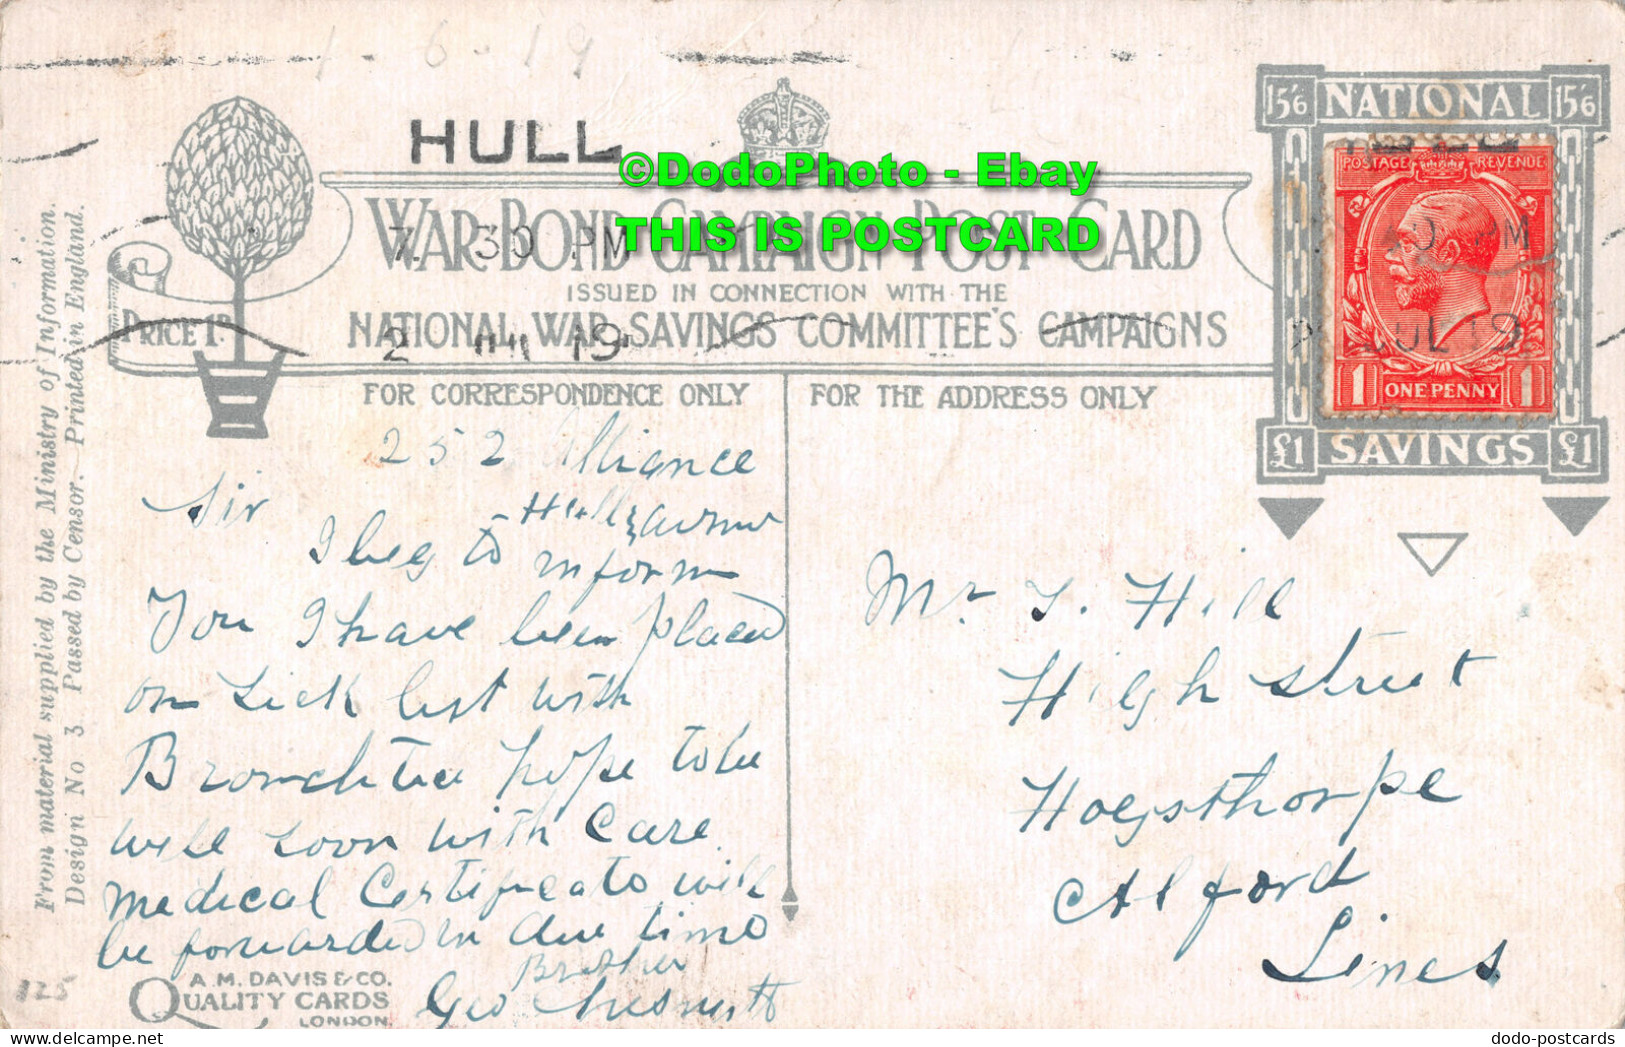 1 - 6 - 19
HULL
©DodoPhoto - Ebay
THIS IS POSTCARD
7. 30 PM
2 JUL 19
WAR BOND CAMPAIGN POST CARD
ISSUED IN CONNECTION WITH THE
NATIONAL WAR SAVINGS COMMITTEE'S CAMPAIGNS
PRICE 1D.
15/6 NATIONAL 15/6
POSTAGE REVENUE
30 PM
JUL 19
1 ONE PENNY 1
£1 SAVINGS £1
FOR CORRESPONDENCE ONLY
FOR THE ADDRESS ONLY
From material supplied by the Ministry of Information.
Design No 3 Passed by Censor. Printed in England.
252 Alliance
Avenue
Hull
Sir
I beg to
inform
You I have been placed
on Sick list with
Bronchitee hope to be
well soon with Care.
Medical Certificate will
be forwarded in due time
Brother
Geo Chesnutt
Mr T. Hill
High Street
Hogsthorpe
Alford
Lincs
125
A. M. DAVIS & CO.
QUALITY CARDS
LONDON.
dodo-postcards